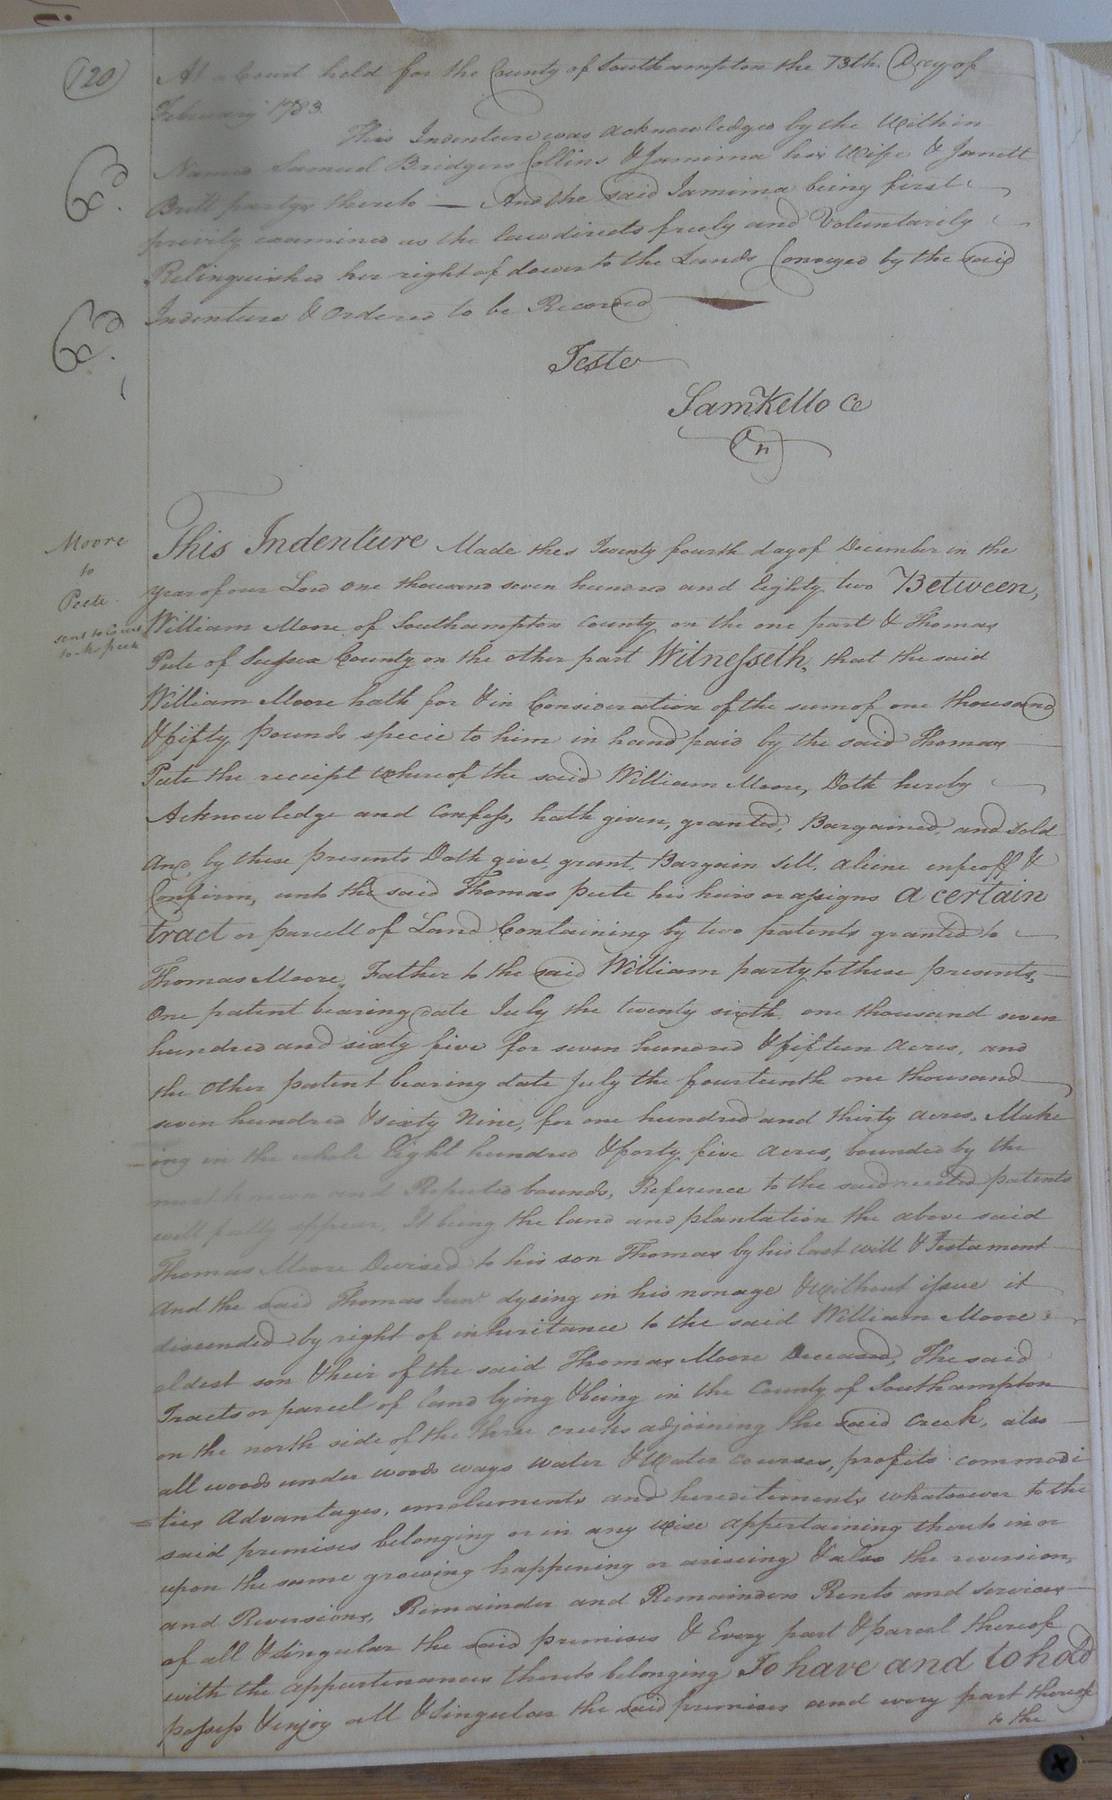 120
At a Court held for the County of Southampton the 13th. Day of
February 1783
This Indenture was acknowledged by the Within
Named Samuel Bridgers Collins & Jamima his Wife & Jarrett
Britt partys thereto — And the said Jamima being first
privily examined as the law directs freely and Voluntarily
Relinquished her right of dower to the Lands Conveyed by the said
Indenture & Ordered to be Recorded
Teste
Saml Kello Ce
Moore
to
Peete
This Indenture Made thes Twenty fourth day of December in the
year of our Lord One thousand seven hundred and Eighty two Between,
William Moore of Southampton County on the one part & Thomas
Pete of Sussex County on the other part Witnesseth, that the said
William Moore hath for & in Consideration of the sum of one thousand
& fifty Pounds specie to him in hand paid by the said Thomas
Pete the receipt whereof the said William Moore, Doth hereby
Acknowledge and Confess, hath given, granted, Bargained, and Sold
And, by these presents Doth give, grant, Bargain sell, aliene enfeoff &
Confirm, unto the said Thomas Peete his heirs or assigns a certain
tract or parcell of Land Containing by two patents granted to
Thomas Moore, Father to the said William party to these presents,
One patent bearing date July the twenty sixth, one thousand seven
hundred and sixty five for seven hundred & fifteen Acres, and
the other patent bearing date July the fourteenth one thousand
seven hundred & sixty Nine, for one hundred and thirty acres. Make
ing in the whole Eight hundred & forty five Acres, bounded by the
most known and Reputed bounds, Reference to the said recited patents
will fully appear, It being the land and plantation the above said
Thomas Moore Devised to his son Thomas by his last will & Testament
And the said Thomas Junr dyeing in his nonage & without issue it
discended by right of inheritance to the said William Moore
eldest son & heir of the said Thomas Moore Deceased, The said
Tracts or parcel of land lying & being in the County of Southampton
on the north side of the Three creeks adjoining the said creek, also
all woods under woods ways water & Water courses, profits commodi
ties Advantages, emoluments and hereditements whatsoever to the
said premises belonging or in any wise appertaining thereto in or
upon the same growing happening or ariseing & also the reversion,
and Reversions, Remainder and Remainders Rents and services
of all & singular the said premises & Every part & parcel thereof
with the appurtenances thereto belonging To have and to hold
possess & enjoy all & singular the said premises and every part thereof
to the